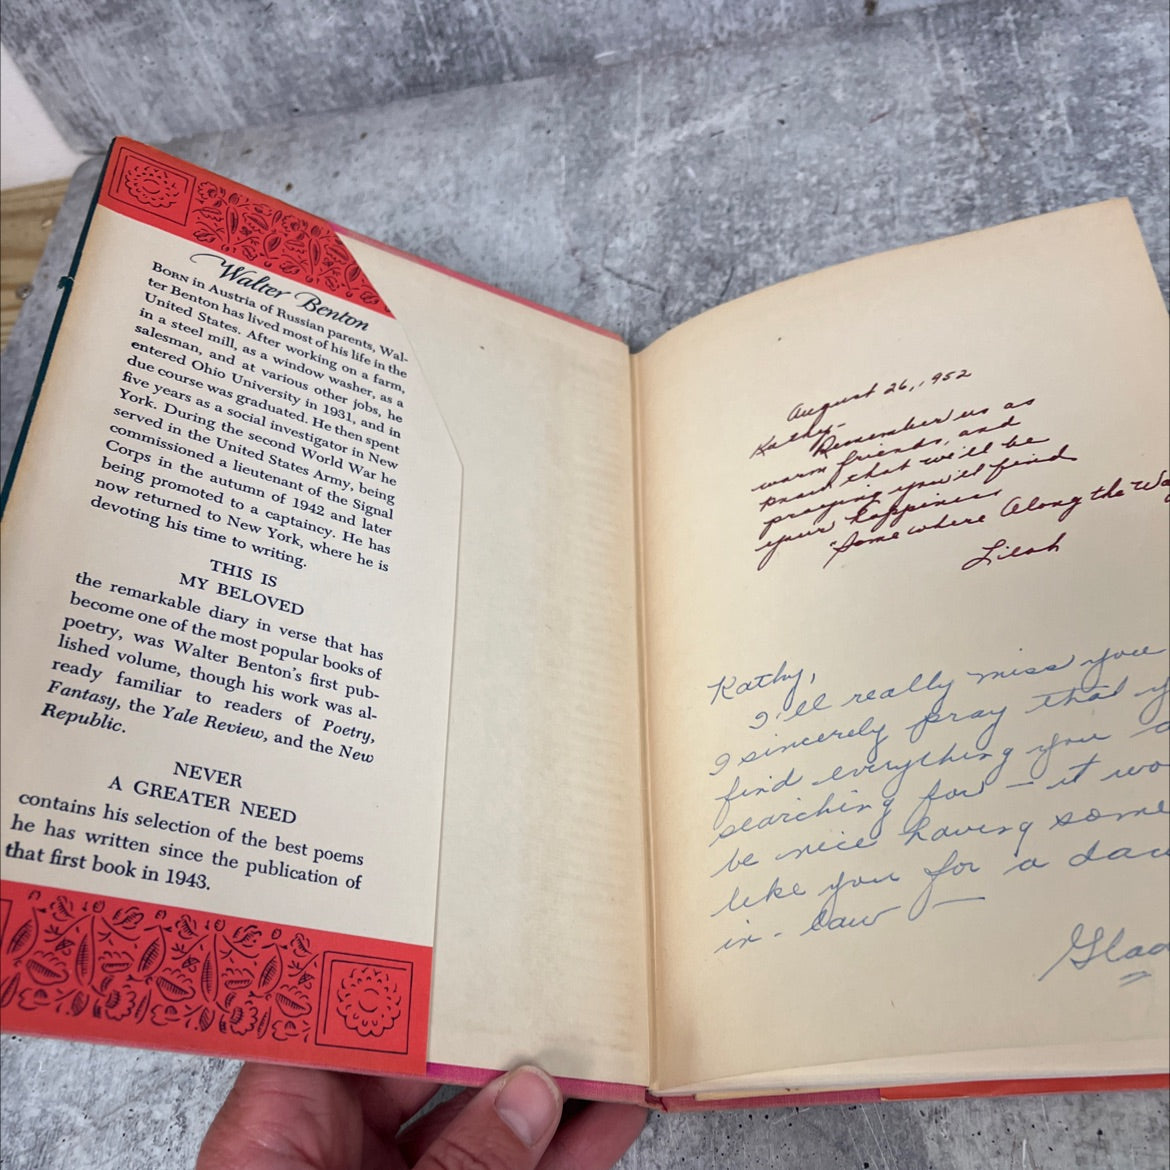 Walter Benton
BORN in Austria of Russian parents, Wal-
ter Benton has lived most of his life in the
United States. After working on a farm,
in a steel mill, as a window washer, as a
salesman, and at various other jobs, he
entered Ohio University in 1931, and in
due course was graduated. He then spent
five years as a social investigator in New
York. During the second World War he
served in the United States Army, being
commissioned a lieutenant of the Signal
Corps in the autumn of 1942 and later
being promoted to a captaincy. He has
now returned to New York, where he is
devoting his time to writing.
THIS IS
MY BELOVED
the remarkable diary in verse that has
become one of the most popular books of
poetry, was Walter Benton's first pub-
lished volume, though his work was al-
ready familiar to readers of Poetry,
Fantasy, the Yale Review, and the New
Republic.
NEVER
A GREATER NEED
contains his selection of the best poems
he has written since the publication of
that first book in 1943.
August 26, 1952
Kathy-
Remember us as
warm friends, and
that we'll be
praying you'll find
your happiness
"Somewhere Along the Way
Lileah
Kathy,
I'll really miss you
I sincerely pray that
find everything you
searching for - it
be nice having some
like you for a
in-law -